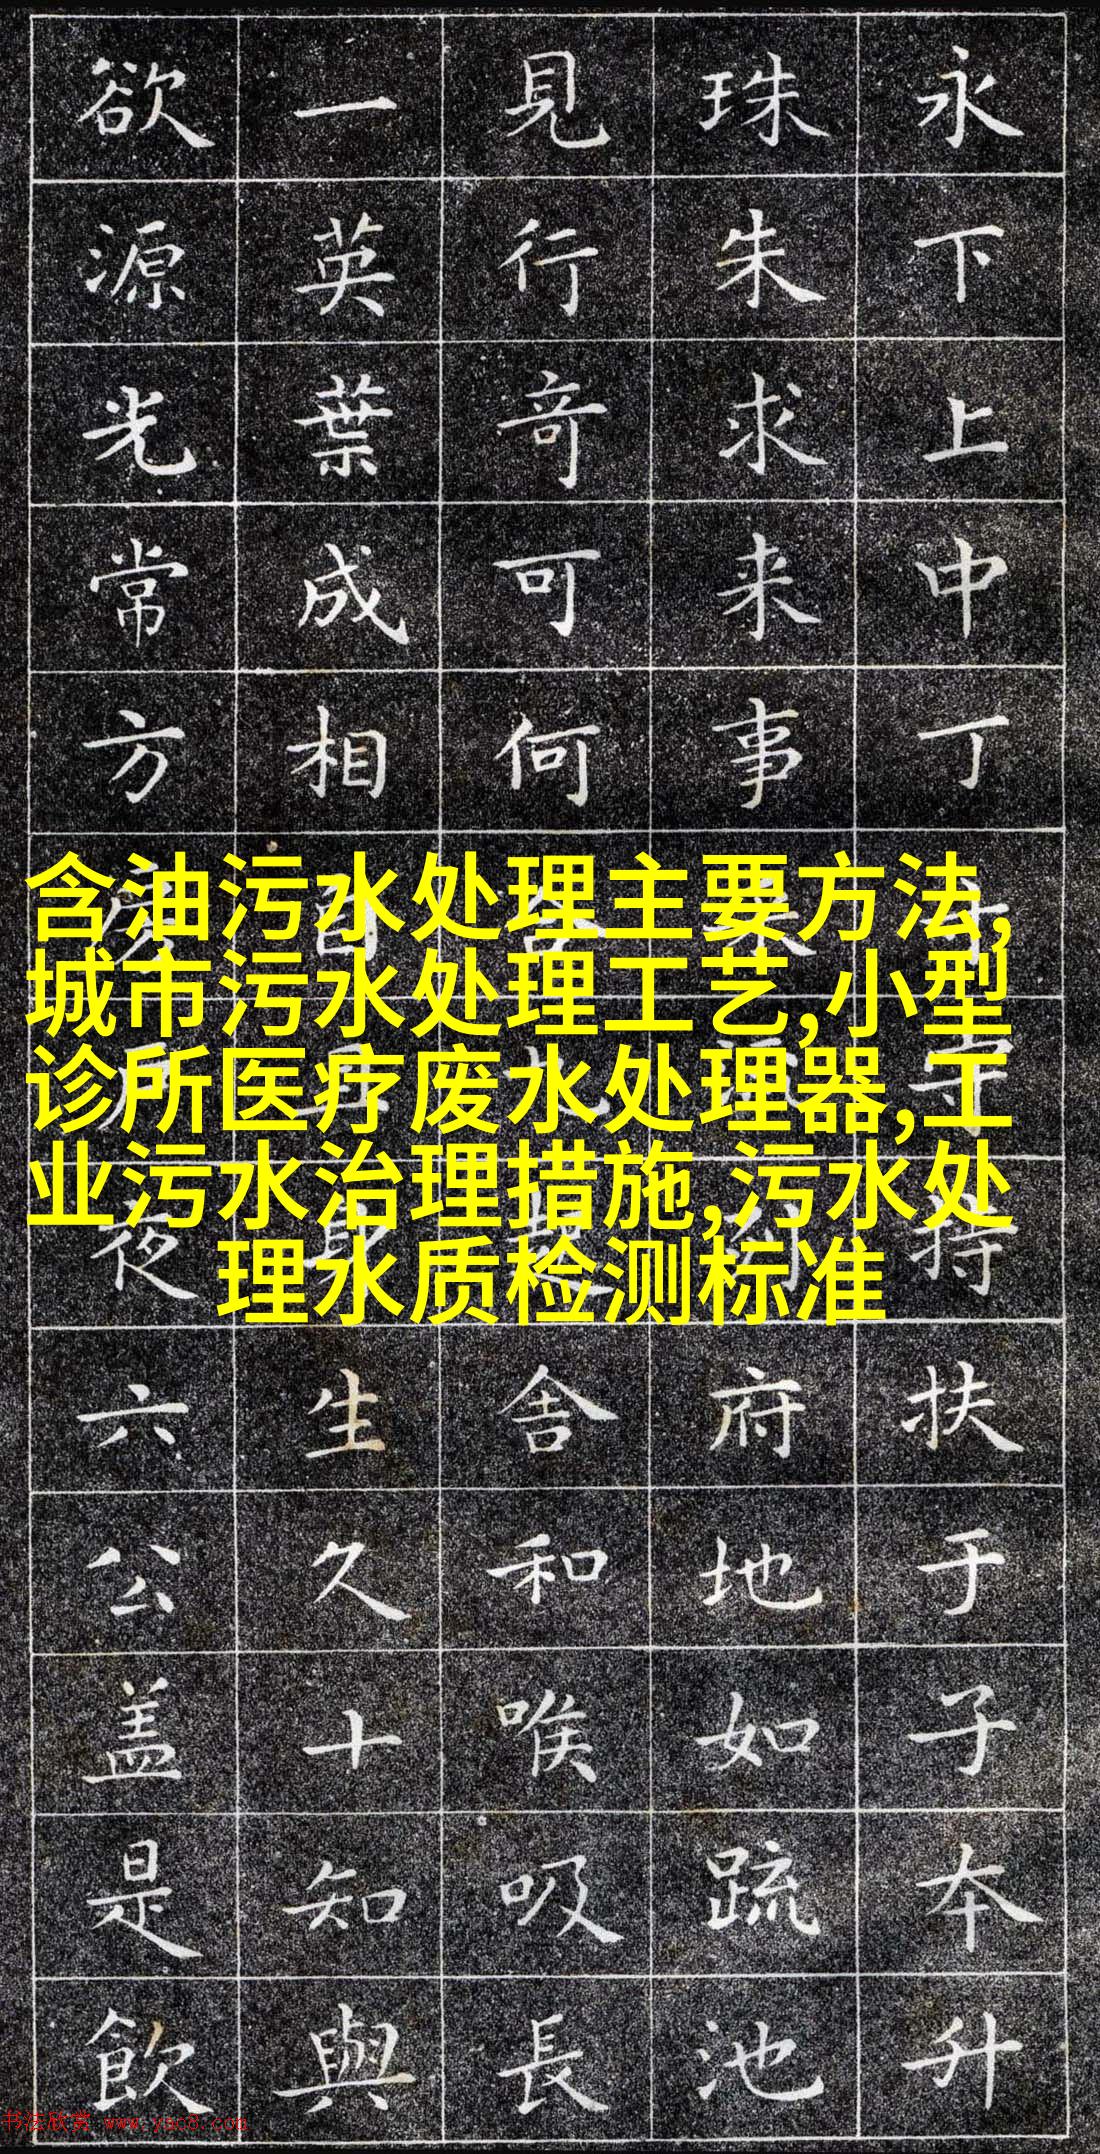 永下上中丁持扶于子本升
珠朱求来事府地如疏池
見行奇可何舍和喉吸長
一英葉成相生久十知與
欲源光常方夜六公盖是飲
含油污水处理主要方法,
城市污水处理工艺,小型
诊所医疗废水处理器,工
业污水治理措施,污水处
理水质检测标准
书法欣赏 www.yac8.com